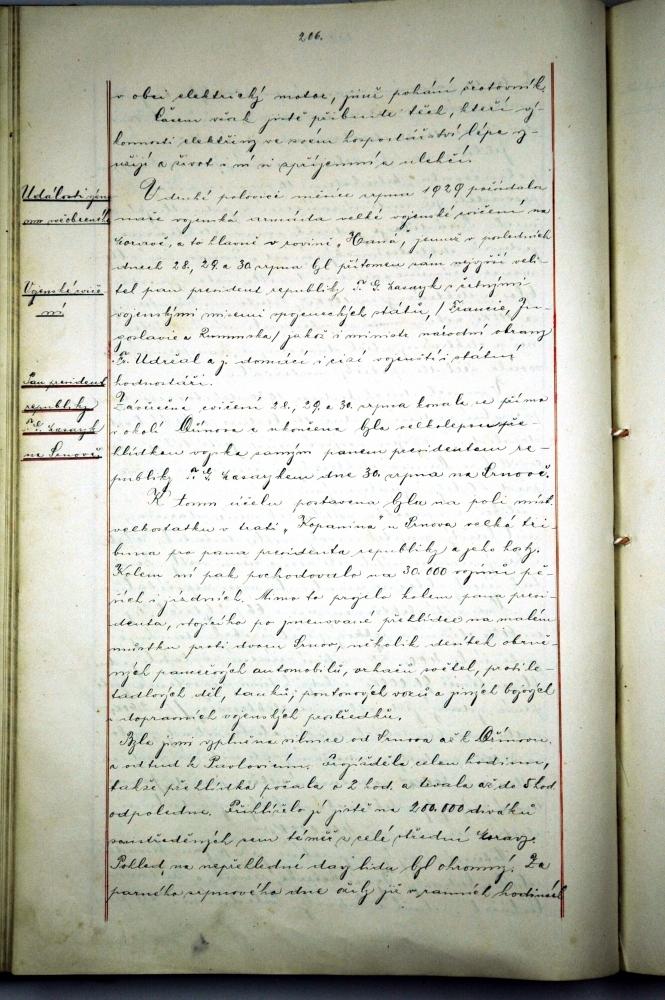 206.
v obci elektrický motor, jímž pohání šrotovník.
Časem však jistě přibude těch, kteří vý-
konnosti elektřiny ve svém hospodářství lépe vy-
užijí a život si ní si zpříjemní a ulehčí.
Události význa
mu všeobecného
V druhé polovici měsíce srpna 1929 pořádala
naše vojenská armáda velké vojenské cvičení na
Moravě, a to hlavně v rovině „Hané", jemuž v posledních
dnech 28., 29. a 30. srpna byl přítomen sám nejvyšší veli-
Vojenské cviče
ní
tel pan president republiky T. G. Masaryk s četnými
vojenskými misemi spojeneckých států, / Francie, Ju-
goslavie a Rumunska / jakož i ministr národní obrany
Fr. Udržal a j. domácí i cizí vojenští i státní
hodnostáři.
Pan president
republiky
T. G. Masaryk
na Srnově
Závěrečná cvičení 28., 29. a 30. srpna konala se přímo
v okolí Ořínova a ukončena byla velkolepou pře-
hlídkou vojska samým panem presidentem re-
publiky T. G. Masarykem dne 30. srpna na Srnově.
K tomu účelu postavena byla na poli míst.
velkostatku v trati „Kopanina" u Srnova velká tri-
buna pro pana presidenta republiky a jeho hosty.
Kolem ní pak pochodovalo na 30.000 vojínů pě-
ších i jízdních. Mimo to projelo kolem pana presi-
denta, stojícího po jmenované přehlídce na malém
můstku proti dvoru Srnov, několik desítek obrně-
ných pancéřových automobilů, vrhačů světel, protile-
tadlových děl, tanků, pontonových vozů a jiných bojových
i dopravních vojenských prostředků.
Byla jimi vyplněna silnice od Srnova až k Ořínovu
a odtud k Pavlovicím. Projížděla celou hodinu,
takže přehlídka počala o 2 hod. a trvala až do 5 hod
odpoledne. Přihlíželo jí jistě na 200.000 diváků
soustředěných sem téměř z celé střední Moravy.
Pohled na nepřehledné davy lidu byl ohromný. Za
parného srpnového dne již v ranních hodinách